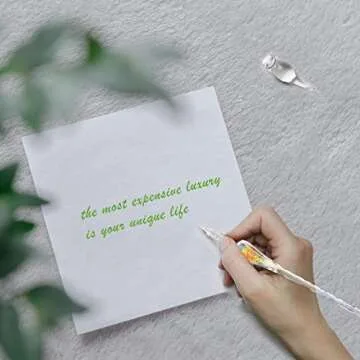 the most expensive luxury
is your unique life